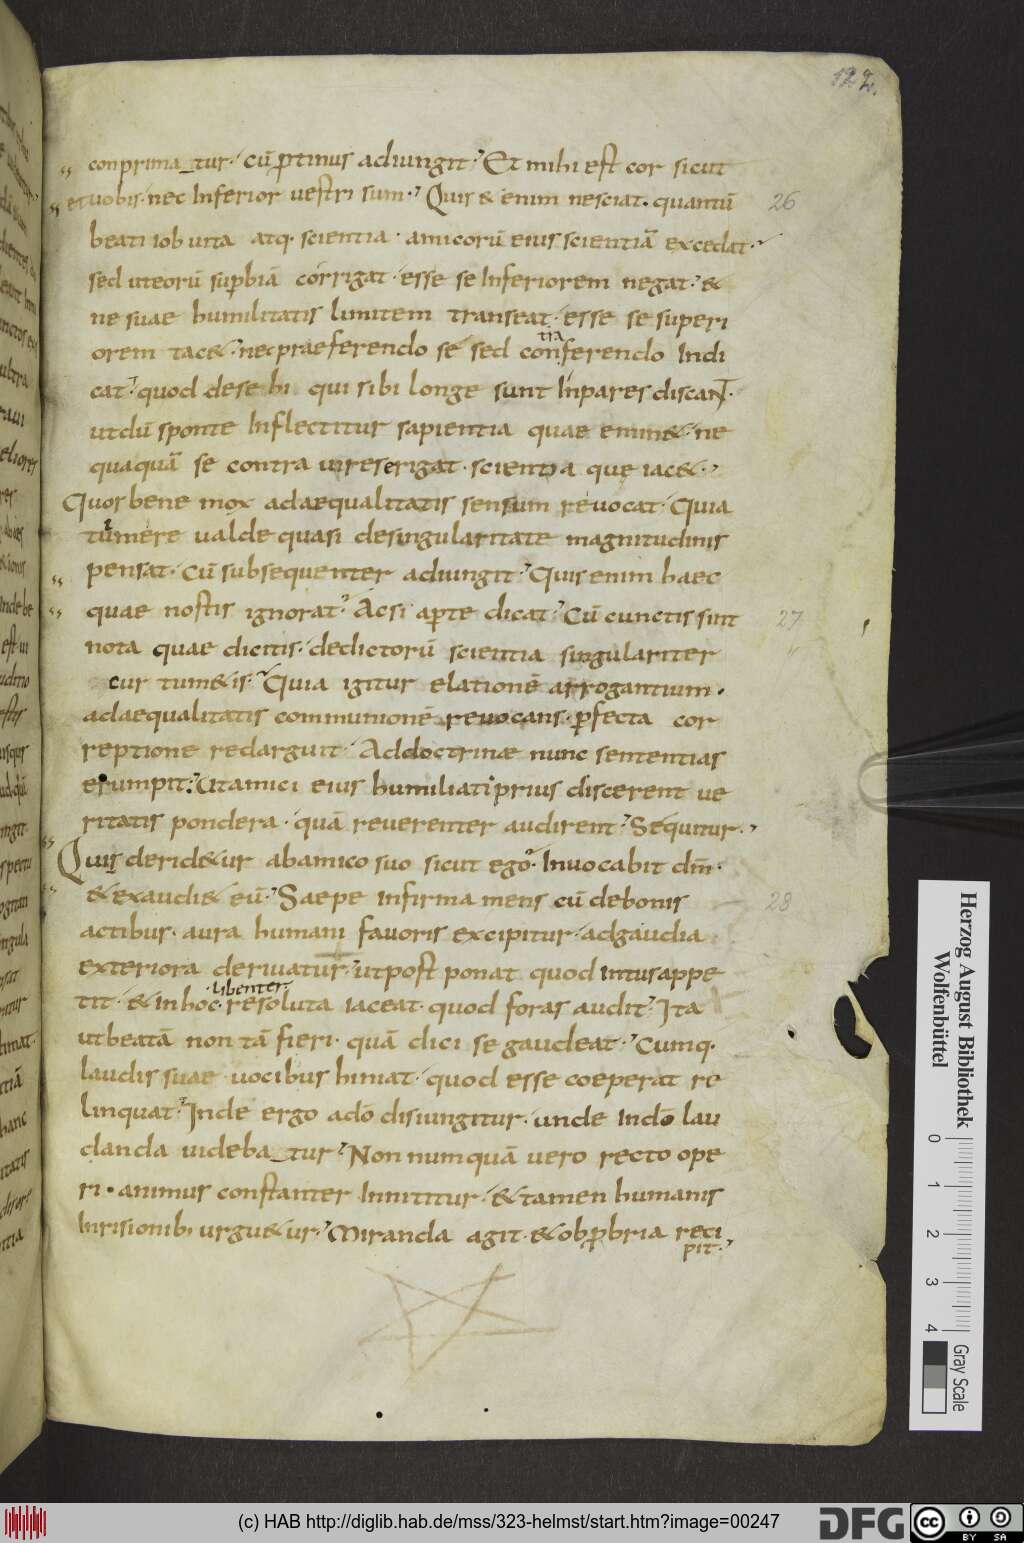 122.
conprimatur. cū ꝓtinus adiungit. Et mihi est cor sicut
et uobis. nec Inferior uestri sum. Quis & enim nesciat. quantū 26
beati iob uita atq. scientia. amicorū eius scientiā excedat.
sed ut eorū supbiā corrigat. esse se Inferiorem negat. &
ne suae humilitatis limitem transeat. esse se superi
orem tac&. nec praeferendo se sed conferendo Indi
tia
cat. quod de se hi qui sibi longe sunt Inpares discant.
ut dū sponte Inflectitur sapientia quae emin&. ne
quaquā se contra uires erigat. scientia que iac&.
Quos bene mox ad aequalitatis sensum reuocat. Quia
tumere ualde quasi de singularitate magnitudinis
pensat. cū subsequenter adiungit. Quis enim haec
quae nostis ignorat. Ac si apte dicat. Cū cunctis sint 27
nota quae dicitis. de dictorū scientia singulariter
cur tum&is. Quia igitur elationē arrogantium.
ad aequalitatis communionē reuocans. pfecta cor
reptione redarguit. Ad doctrinae nunc sententias
erumpit. Ut amici eius humiliati prius discerent ue
ritatis pondera. quā reuerenter audirent. Sequitur.
Quis derid&ur ab amico suo sicut ego. Inuocabit dm̄.
& exaudi& eū. Saepe infirma mens cū de bonis 28
actibus. aura humani fauoris excipitur. ad gaudia
exteriora deriuatur. ut post ponat quod intus appe
libenter
tit. & in hoc. resoluta iaceat. quod foras audit. Ita
ut beatā non tā fieri. quā dici se gaudeat. Cumq.
laudis suae uocibus himat. quod esse coeperat re
linquat. Inde ergo a dō disiungitur. unde In dō lau
danda uidebatur. Non numquā uero recto ope
ri. animus constanter Innititur. & tamen humanis
Inrisionibi urgu&ur. Miranda agit. & obpbria reci
pit.
Herzog August Bibliothek
Wolfenbüttel
0 1 2 3 4
Gray Scale
(c) HAB http://diglib.hab.de/mss/323-helmst/start.htm?image=00247
DFG
cc BY SA